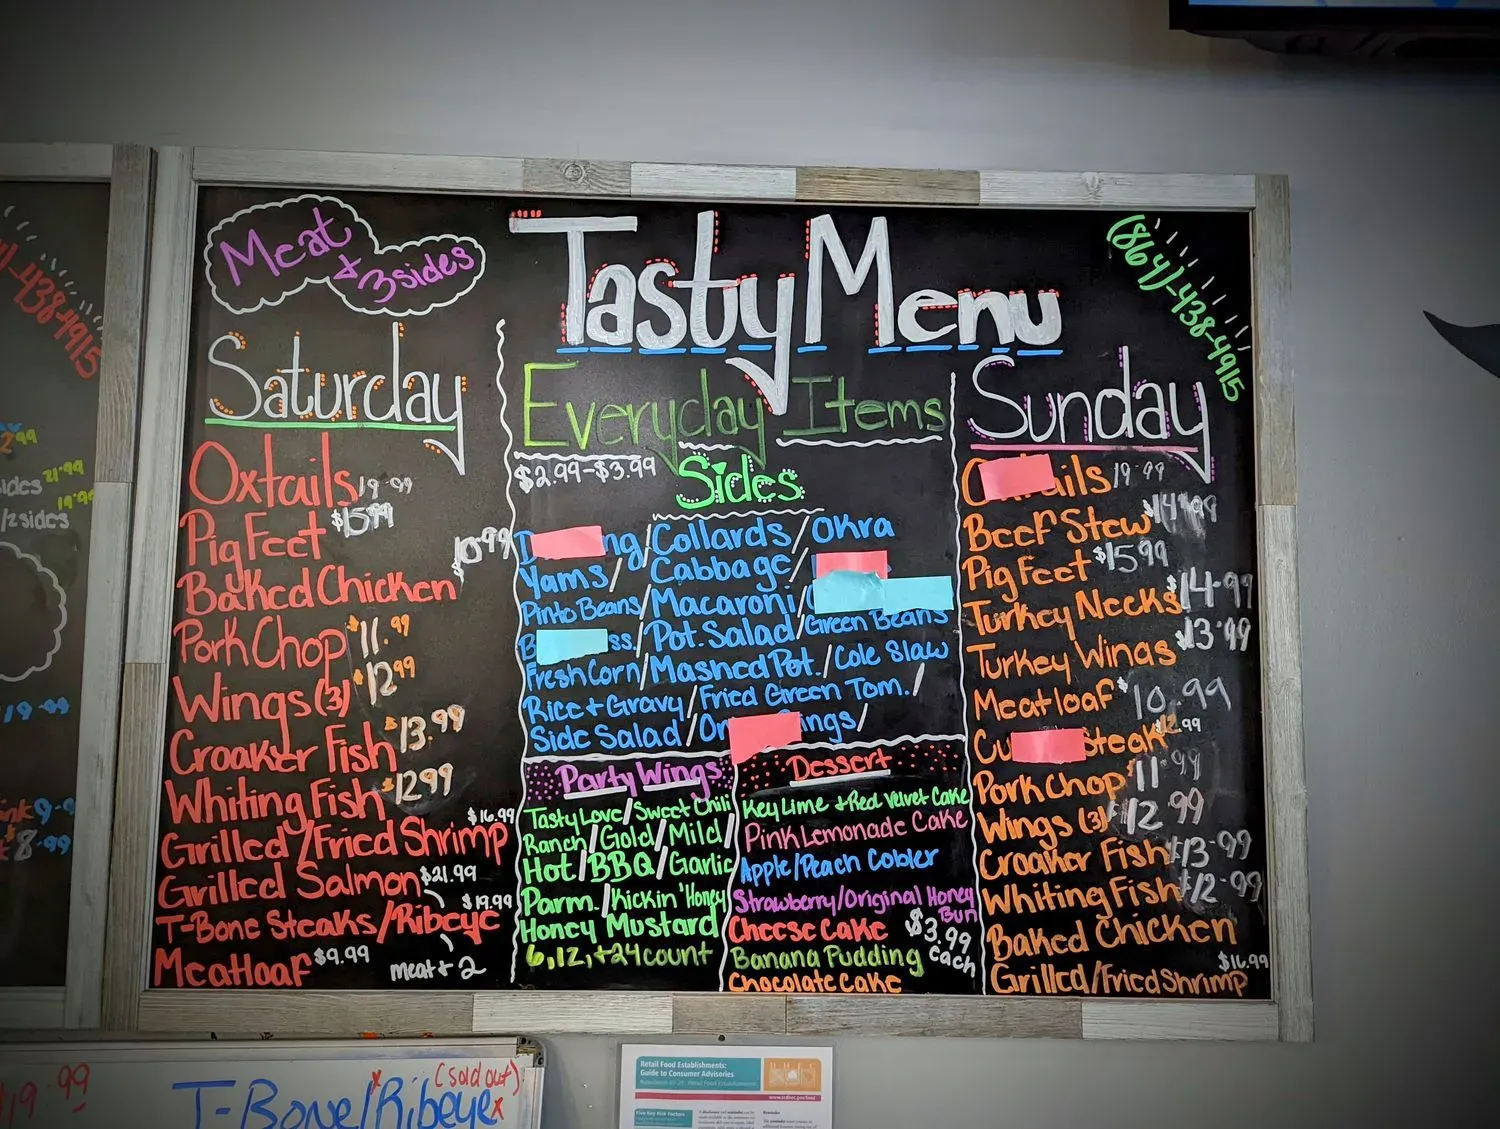 Meat
+ 3 sides
Tasty Menu
(864)-438-4915
Saturday
Oxtails 19.99
Pig Feet $15.99
Baked Chicken $10.99
Pork Chop $11.99
Wings (3) $12.99
Croaker Fish $13.99
Whiting Fish $12.99
Grilled/Fried Shrimp $16.99
Grilled Salmon $21.99
T-Bone Steaks/Ribeye $19.99
meat + 2
Meatloaf $9.99
Everyday Items
$2.99-$3.99
Sides
ng/Collards/Okra
Yams/Cabbage/
Pinto Beans/Macaroni/
ss./Pot. Salad/Green Beans
Fresh Corn/Mashed Pot./Cole Slaw
Rice + Gravy/Fried Green Tom./
Side Salad/On ings/
Party Wings
Tasty Love/Sweet Chili
Ranch/Gold/Mild/
Hot/BBQ/Garlic
Parm./Kickin' Honey
Honey Mustard
6, 12, + 24 count
Dessert
Key Lime + Red Velvet Cake
Pink Lemonade Cake
Apple/Peach Cobler
Strawberry/Original Honey
Bun
Cheese Cake
Banana Pudding
Chocolate Cake
$3.99
each
Sunday
O ails 19.99
Beef Stew $14.99
Pig Feet $15.99
Turkey Necks $14.99
Turkey Wings $13.99
Meatloaf $10.99
Cu Steak $12.99
Pork Chop $11.99
Wings (3) $12.99
Croaker Fish $13.99
Whiting Fish $12.99
Baked Chicken
Grilled/Fried Shrimp $16.99
-438-4915
ides 21.99
19.99
/2 sides
19.99
ink 9.9
8.99
19.99
T-Bone/Ribeye
(sold out)
Retail Food Establishments:
Guide to Consumer Advisories
Five Key Risk Factors